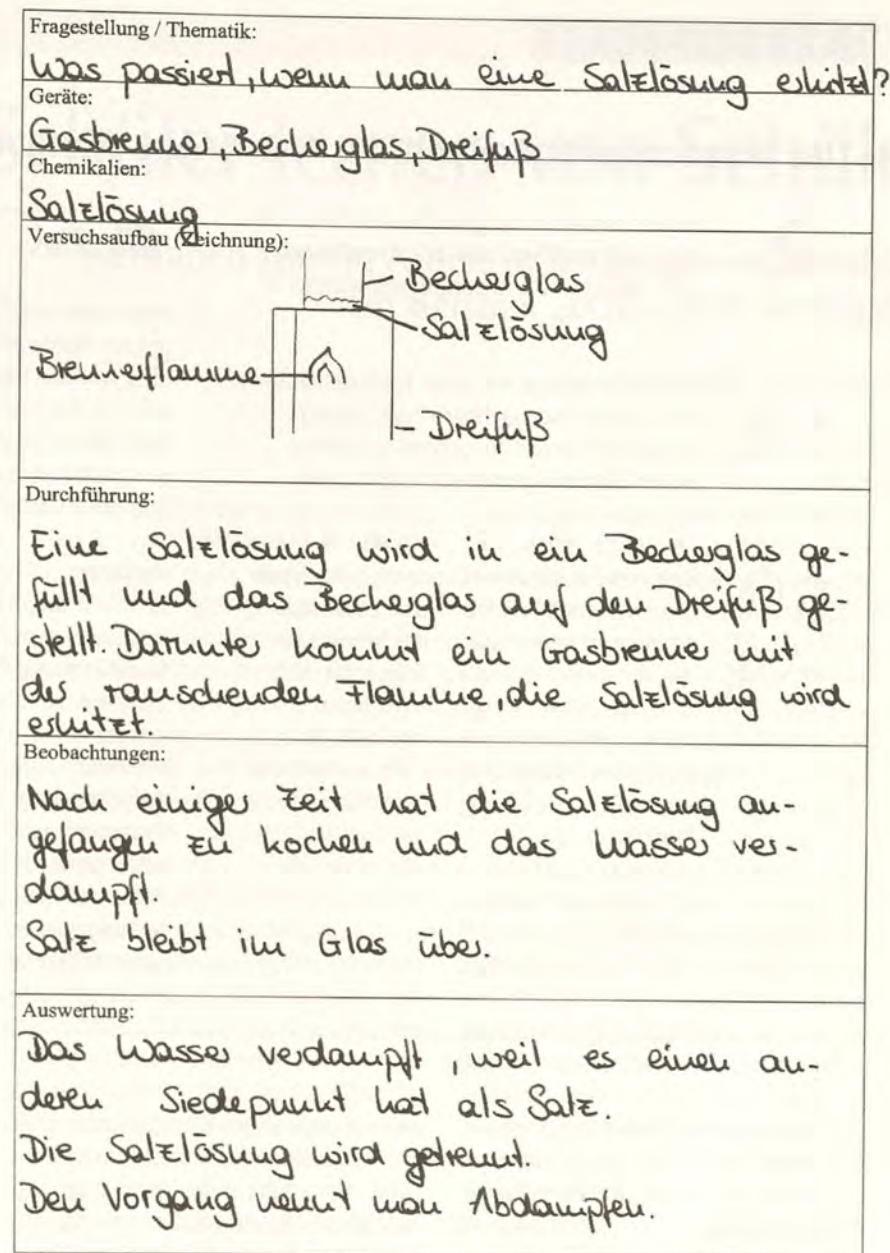 Fragestellung / Thematik:
Was passiert, wenn man eine Salzlösung erhitzt?
Geräte:
Gasbrenner, Becherglas, Dreifuß
Chemikalien:
Salzlösung
Versuchsaufbau (Zeichnung):
Becherglas
Salzlösung
Brennerflamme
Dreifuß
Durchführung:
Eine Salzlösung wird in ein Becherglas ge-
füllt und das Becherglas auf den Dreifuß ge-
stellt. Darunter kommt ein Gasbrenner mit
der rauschenden Flamme, die Salzlösung wird
erhitzt.
Beobachtungen:
Nach einiger Zeit hat die Salzlösung an-
gefangen zu kochen und das Wasser ver-
dampft.
Salz bleibt im Glas über.
Auswertung:
Das Wasser verdampft, weil es einen an-
deren Siedepunkt hat als Salz.
Die Salzlösung wird getrennt.
Den Vorgang nennt man Abdampfen.